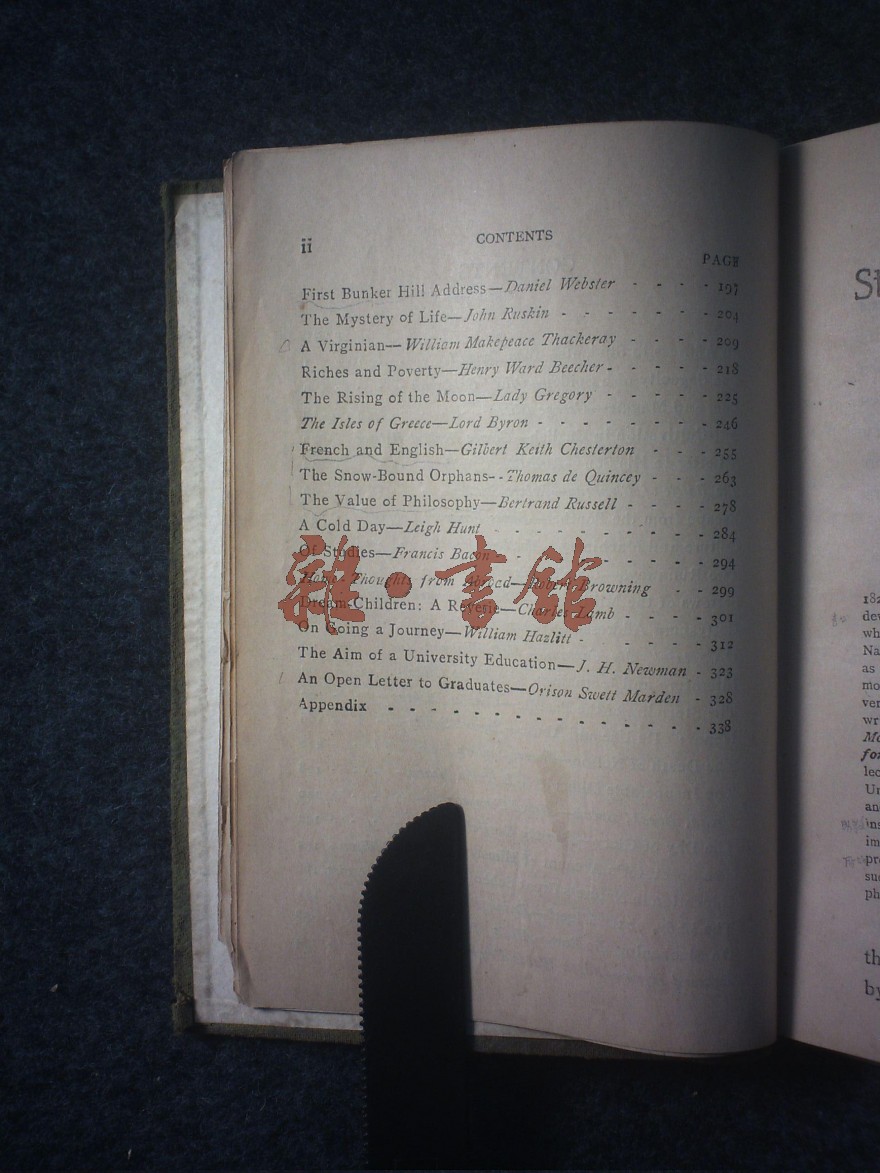 ii
CONTENTS
PAGE
First Bunker Hill Address—Daniel Webster - - - - 197
The Mystery of Life—John Ruskin - - - - - - - 204
A Virginian—William Makepeace Thackeray - - - - 209
Riches and Poverty—Henry Ward Beecher - - - - - 218
The Rising of the Moon—Lady Gregory - - - - - 225
The Isles of Greece—Lord Byron - - - - - - - - 246
French and English—Gilbert Keith Chesterton - - - 255
The Snow-Bound Orphans--Thomas de Quincey - - - 263
The Value of Philosophy—Bertrand Russell - - - - 278
A Cold Day—Leigh Hunt - - - - - - - - 284
Of Studies—Francis Bacon - - - - - - - 294
Home-Thoughts from Abroad—Robert Browning - - - 299
Dream-Children: A Reverie—Charles Lamb - - - - 301
On Going a Journey—William Hazlitt - - - - - 312
The Aim of a University Education—J. H. Newman - 323
An Open Letter to Graduates—Orison Swett Marden - 328
Appendix - - - - - - - - - - - - 338
雜·書館
St
182
dev
wh
Na
as
mo
ver
wr
Mo
for
lec
Un
an
ins
im
pro
suc
ph
th
by